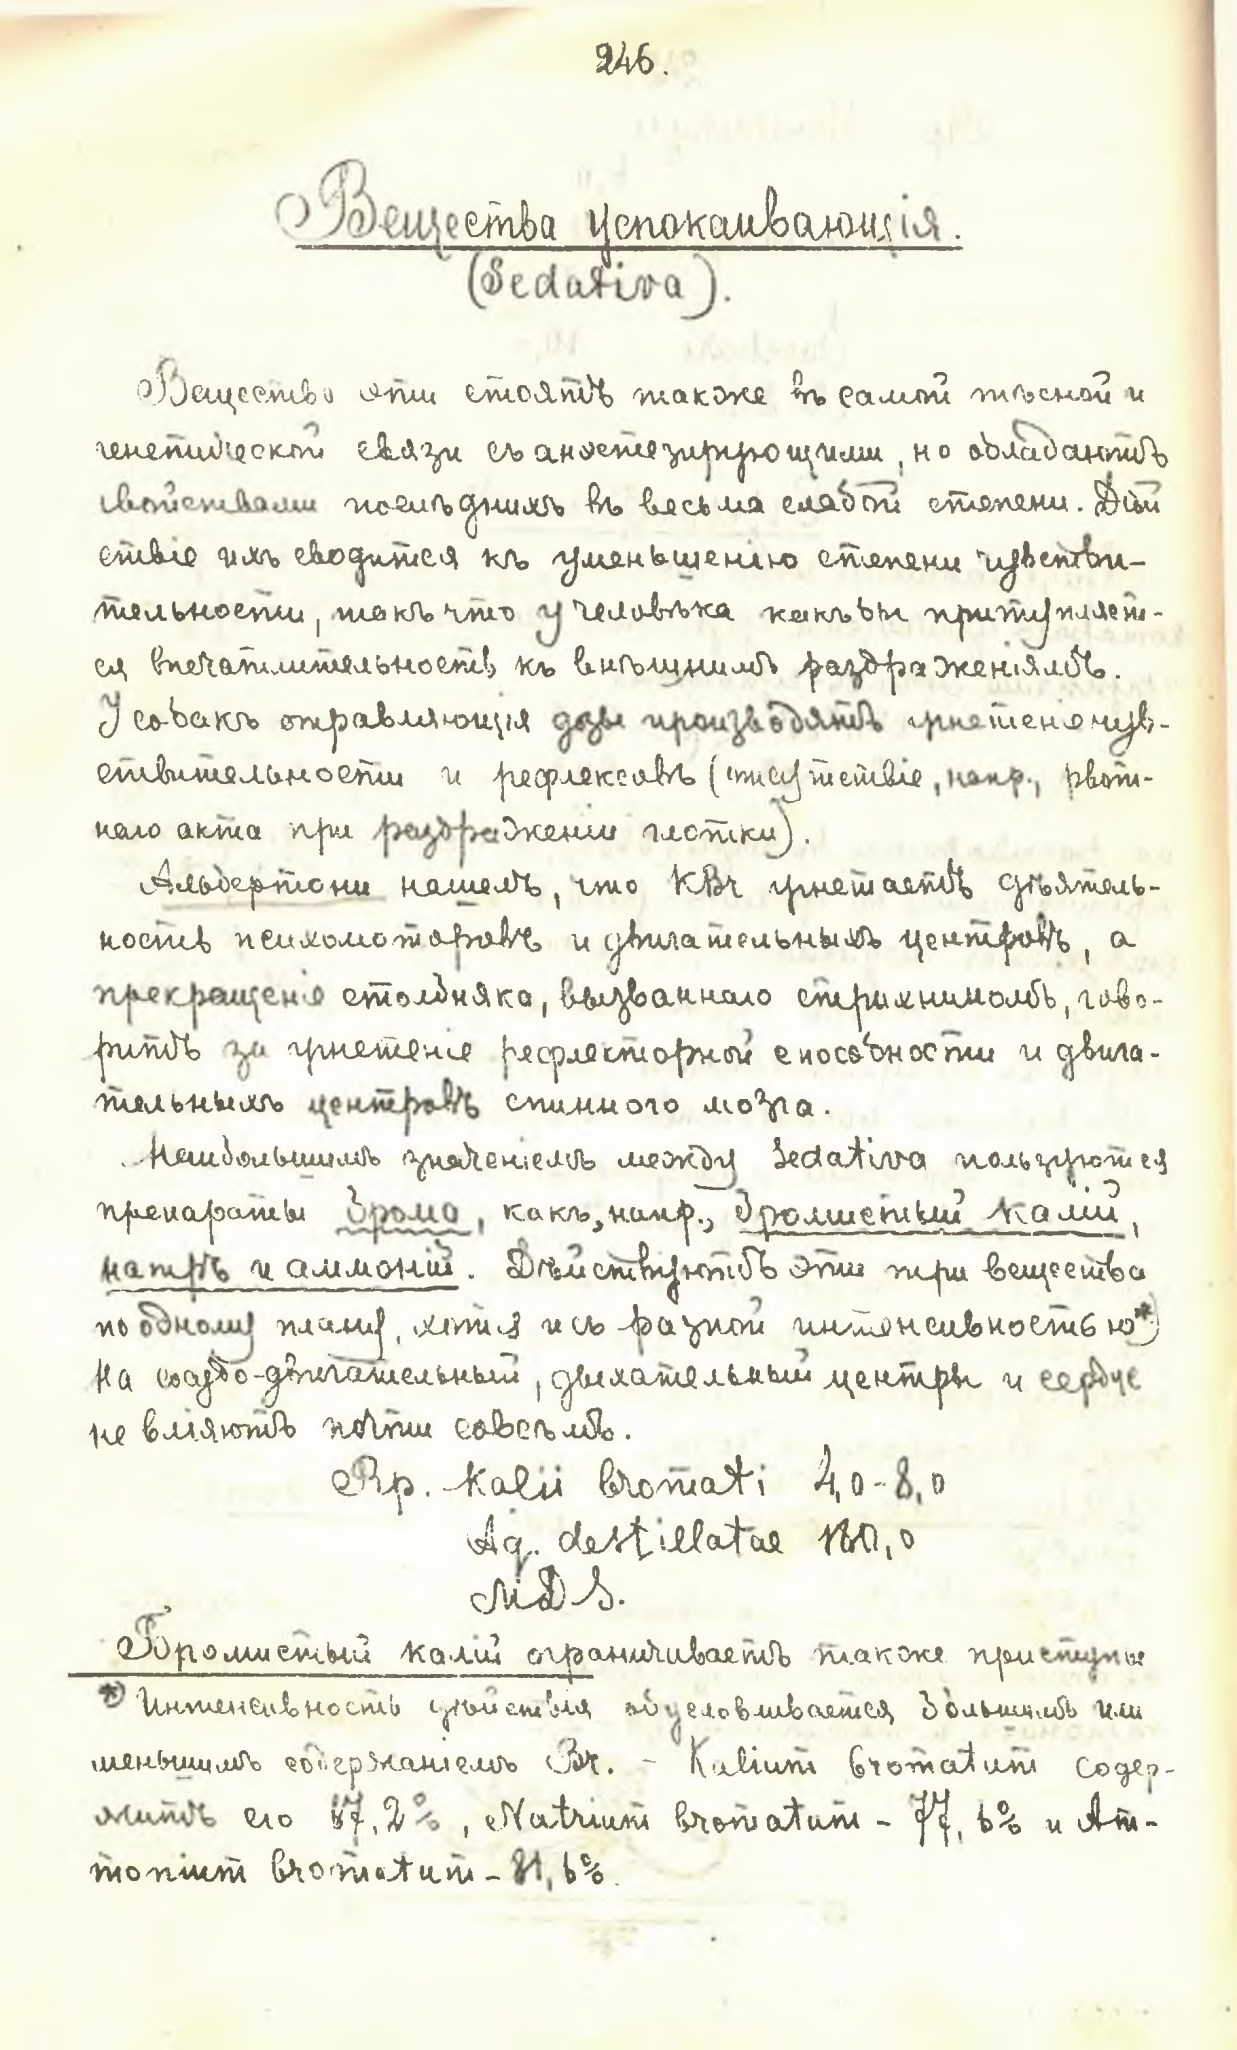 246.
Вещества успокаивающія.
(Sedativa).
Вещества эти стоятъ также въ самой тѣсной и
генетической связи съ анэстезирующими, но обладаютъ
свойствами послѣднихъ въ весьма слабой степени. Дѣй
ствіе ихъ сводится къ уменьшенію степени чувстви-
тельности, такъ что у человѣка какъ бы притупляет-
ся впечатлительность къ внѣшнимъ раздраженіямъ.
У собакъ отравляющія дозы производятъ угнетеніе чув-
ствительности и рефлексовъ (отсутствіе, напр., рвот-
наго акта при раздраженіи глотки).
Альбертони нашелъ, что KBr угнетаетъ дѣятель-
ность психомоторовъ и двигательныхъ центровъ, а
прекращеніе столбняка, вызваннаго стрихниномъ, гово-
ритъ за угнетеніе рефлекторной способности и двига-
тельныхъ центровъ спинного мозга.
Наибольшимъ значеніемъ между Sedativa пользуются
препараты брома, какъ, напр., бромистый калій,
натръ и аммоній. Дѣйствуютъ эти три вещества
по одному плану, хотя и съ разной интенсивностью*)
На сосудо-двигательный, дыхательный центры и сердце
не вліяютъ почти совсѣмъ.
Rp. Kalii bromati 4,0-8,0
Aq. destillatae 180,0
MDS.
Бромистый калій ограничиваетъ также приступы
*) Интенсивность дѣйствія обусловливается большимъ или
меньшимъ содержаніемъ Br. - Kalium bromatum содер-
житъ его 67,2%, Natrium bromatum - 77,6% и Am-
monium bromatum - 81,6%